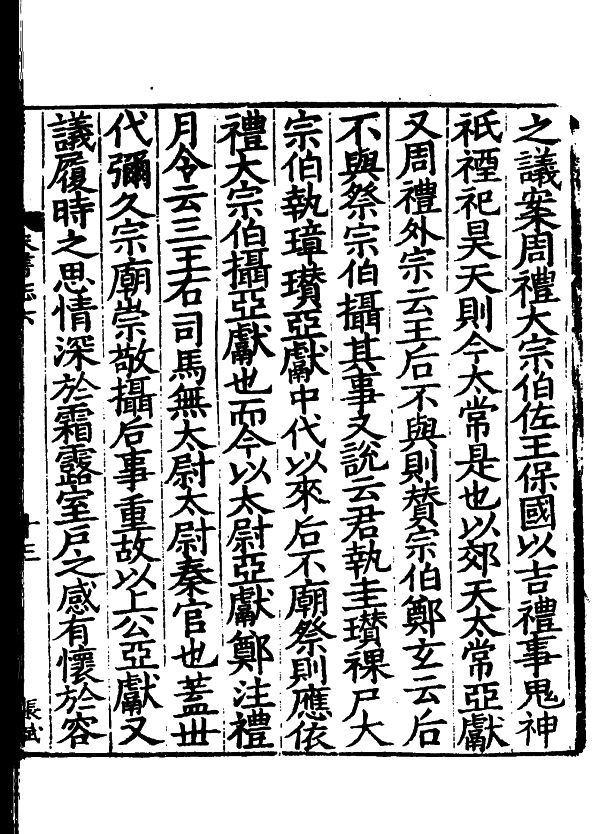 之議案周禮大宗伯佐王保國以吉禮事鬼神
祇禋祀昊天則今太常是也以郊天太常亞獻
又周禮外宗云王后不與則賛宗伯鄭玄云后
不與祭宗伯攝其事又說云君執圭瓚祼尸大
宗伯執璋瓚亞獻中代以來后不廟祭則應依
禮大宗伯攝亞獻也而今以太尉亞獻鄭注禮
月令云三王右司馬無太尉太尉秦官也蓋世
代彌久宗廟崇敬攝后事重故以上公亞獻又
議履時之思情深於霜露室戸之感有懷於容
志六
十三